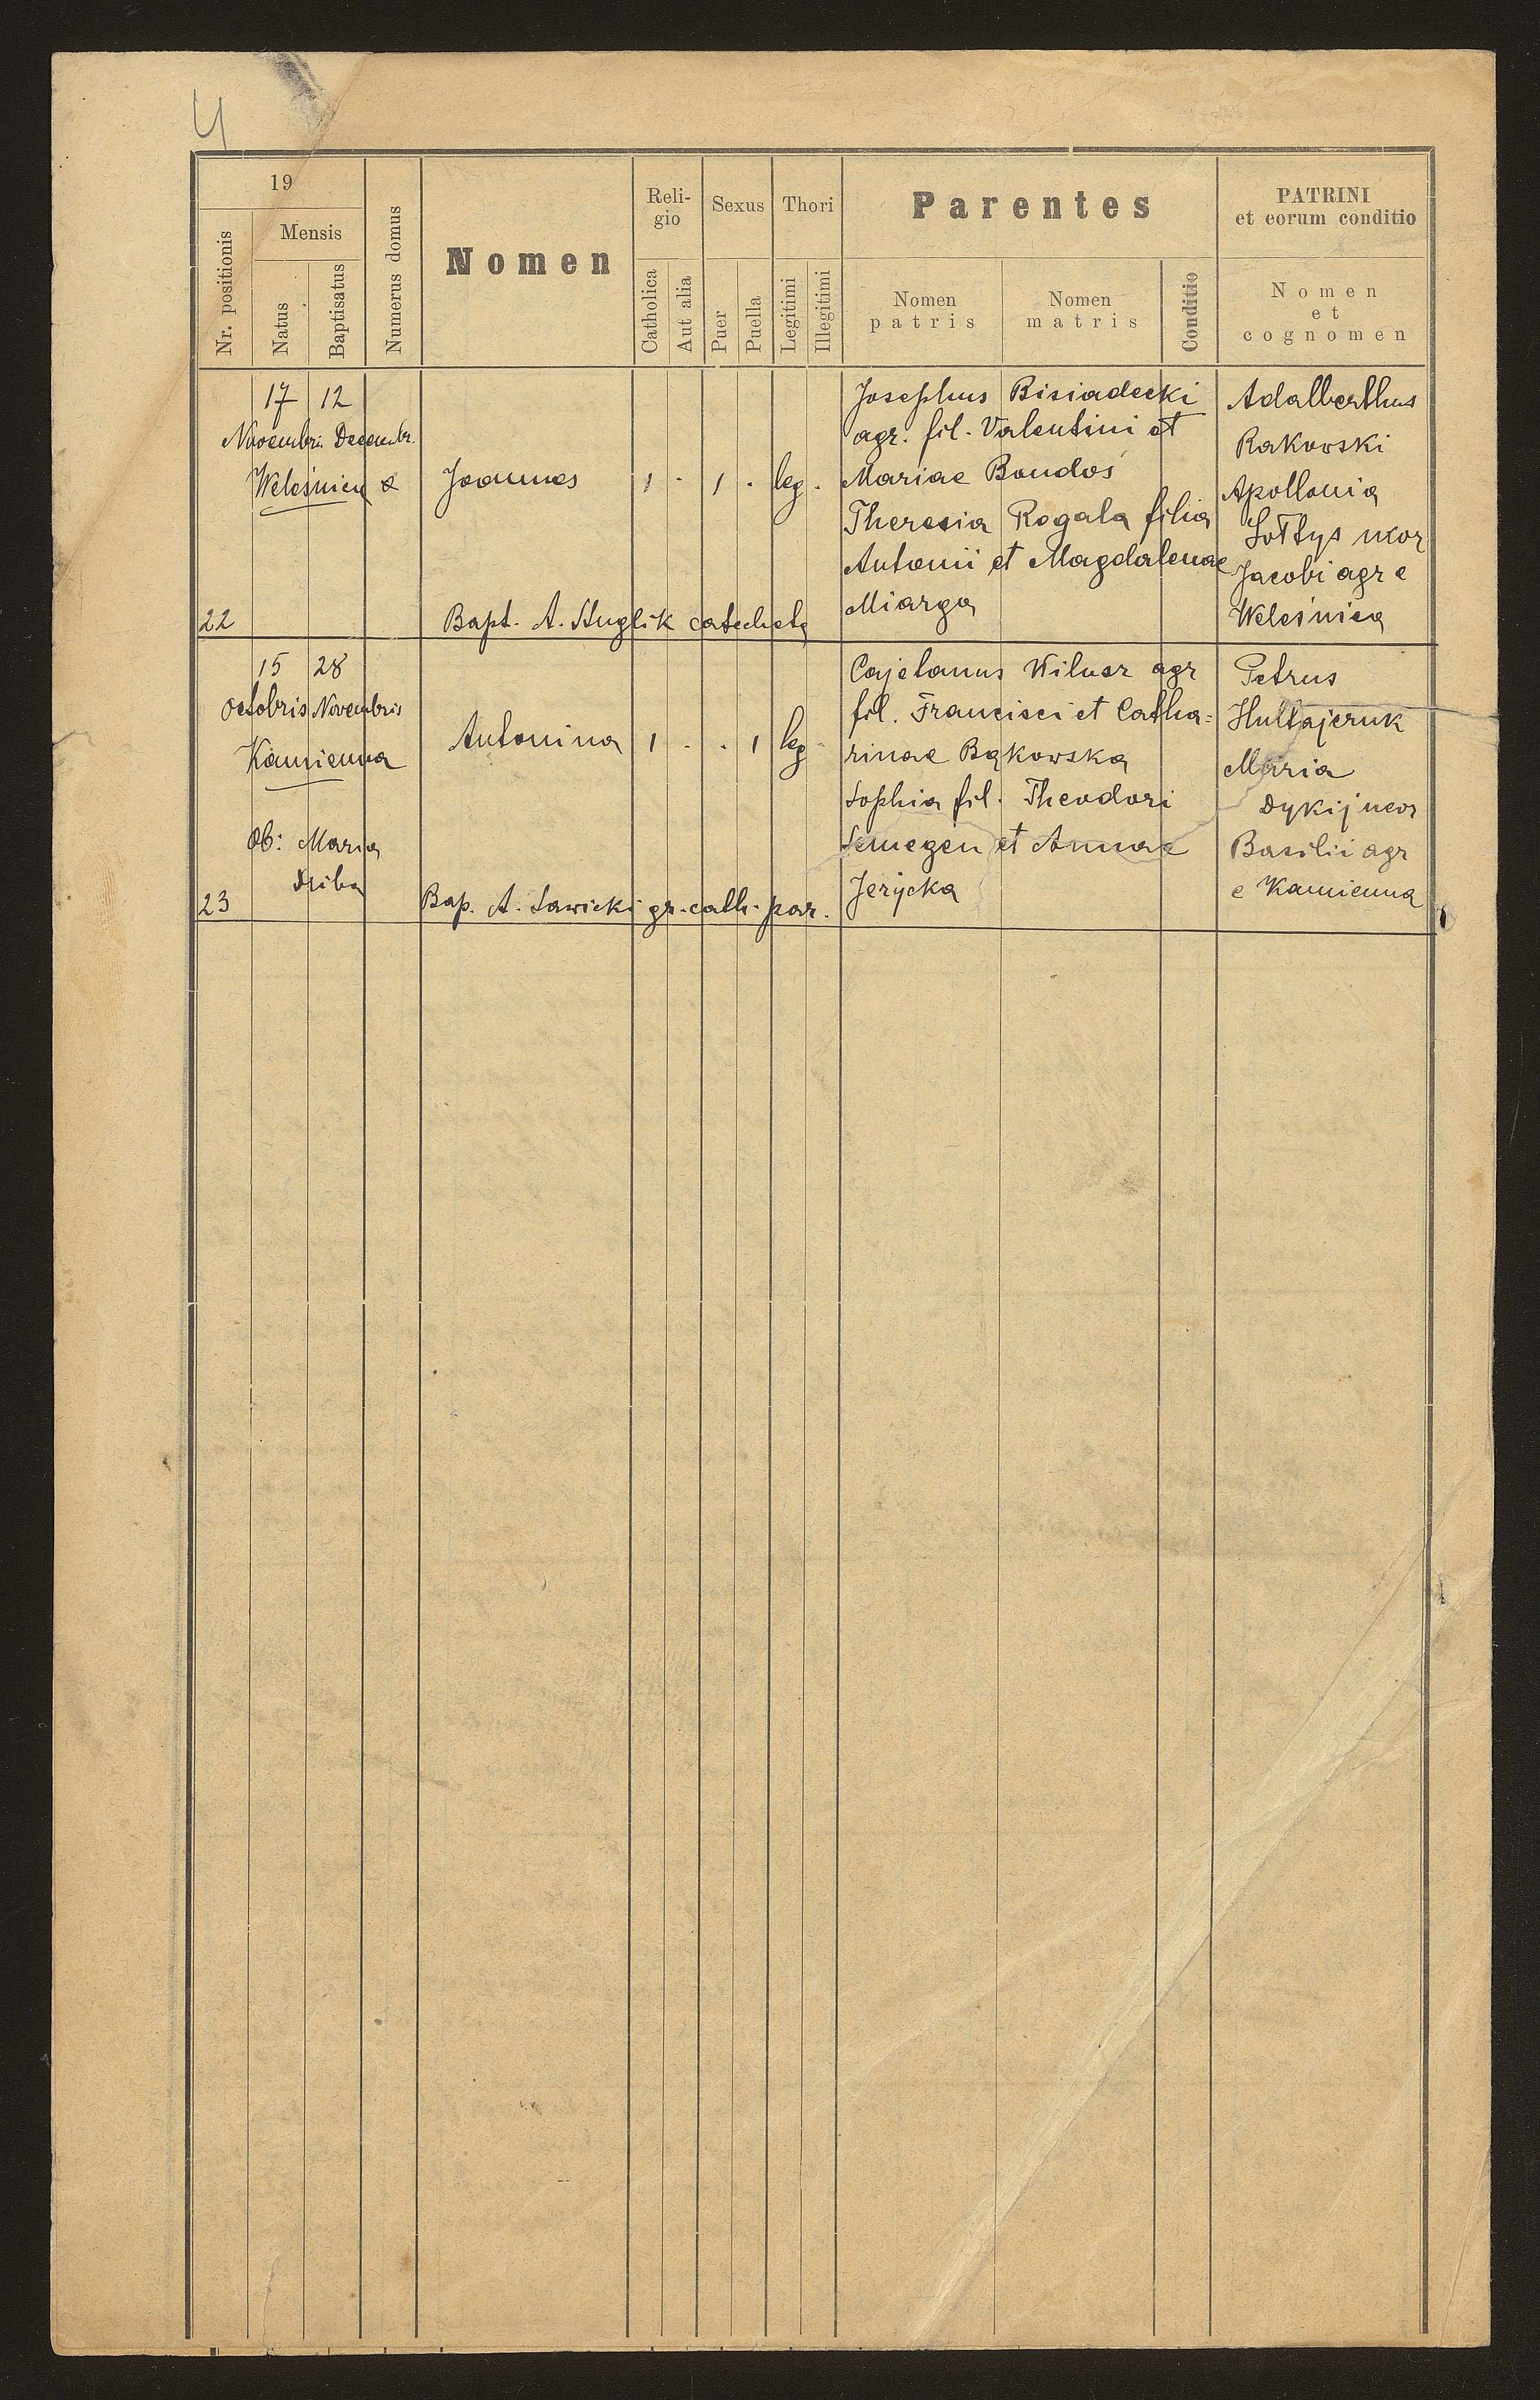 4
19
Nr. positionis
Mensis
Natus
Baptisatus
Numerus domus
Nomen
Reli-
gio
Catholica
Aut alia
Sexus
Puer
Puella
Thori
Legitimi
Illegitimi
Parentes
Nomen
patris
Nomen
matris
Conditio
PATRINI
et eorum conditio
Nomen
et
cognomen
22
17 12
Novembris Decembr.
Weleśnica
Joannes
1 . 1 . leg.
Bapt. A. Stuglik catecheta
Josephus Bisiadecki
agr. fil. Valentini et
Mariae Bondos
Theresia Rogala filia
Antonii et Magdalenae
Miarga
Adalberthus
Rakowski
Apollonia
Sołtys uxor
Jacobi agr e
Weleśnica
23
15 28
octobris Novembris
Kamienna
Ob: Maria
Antonina
1 . . 1 leg
Bap. A. Sawicki gr. cath. par.
Cajetanus Wilner agr
fil. Francisci et Catha=
rinae Bąkowska
Sophia fil. Theodori
Semegen et Annae
Jerycka
Petrus
Hultajczuk
Maria
Dykij uxor
Basilii agr
e Kamienna